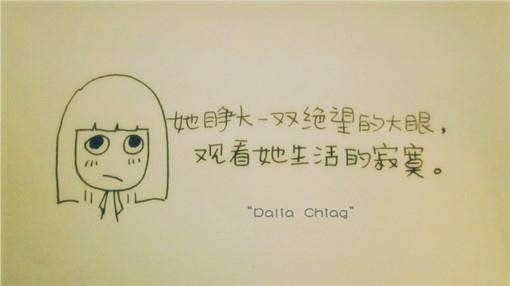 她睁大一双绝望的大眼，
观看她生活的寂寞。
"Dalla Chiag"